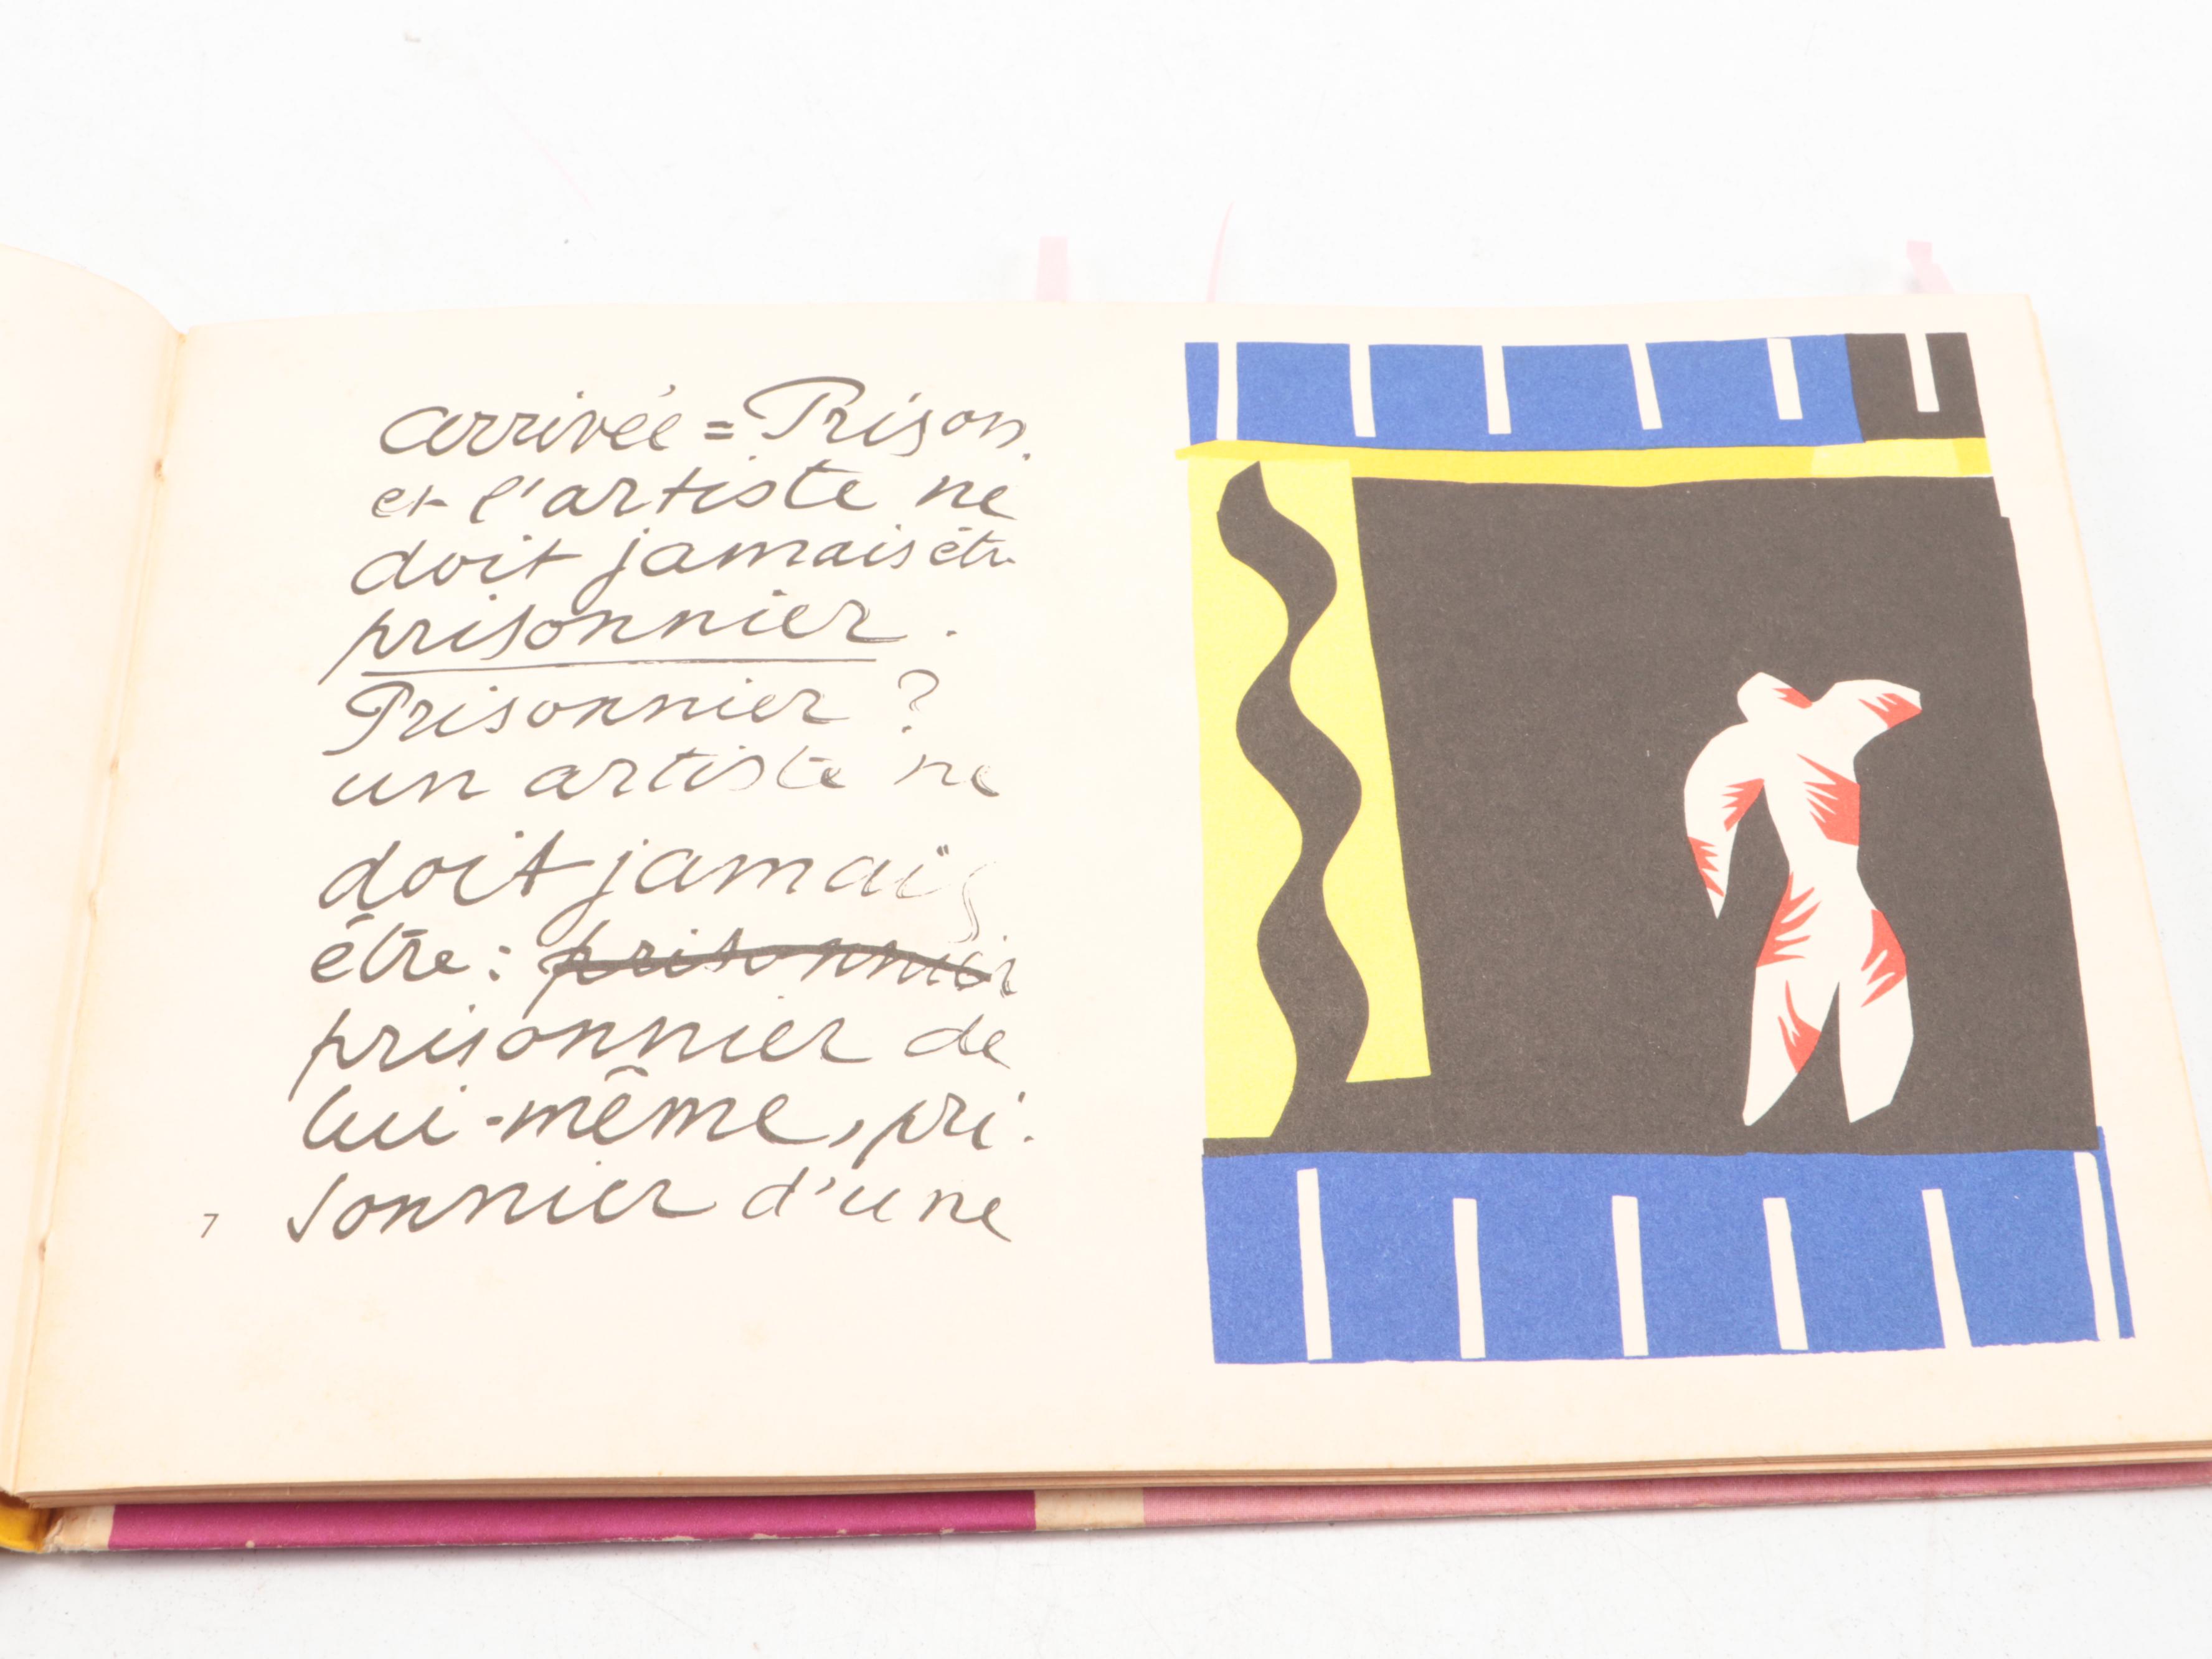 arrivée = Prison
et l'artiste ne
doit jamais être
prisonnier.
Prisonnier ?
un artiste ne
doit jamais
être : prisonnier
prisonnier de
lui-même, pri-
sonnier d'une
7